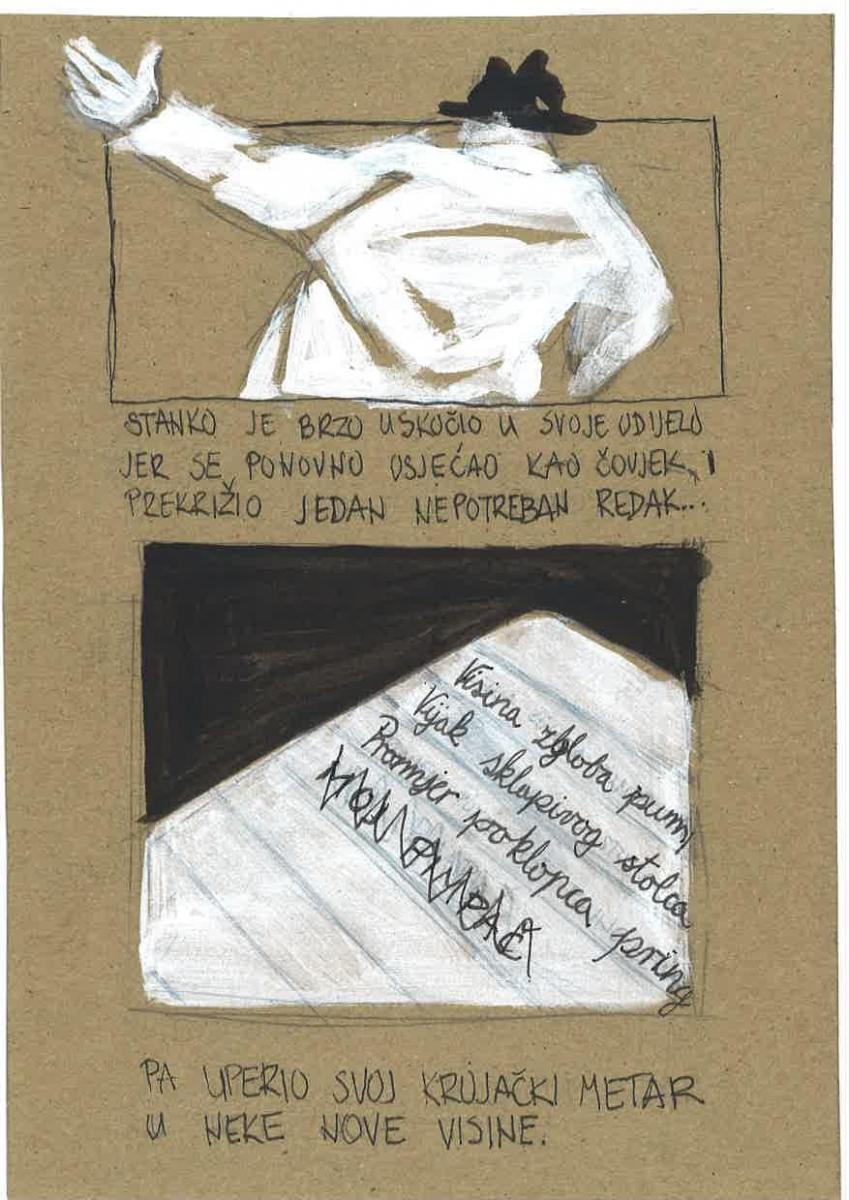 STANKO JE BRZO USKOČIO U SVOJE ODIJELO
JER SE PONOVNO OSJEĆAO KAO ČOVJEK, I
PREKRIŽIO JEDAN NEPOTREBAN REDAK...
Visina zgloba pum
Vijak sklapivog stolca
Promjer poklopca pring
PA UPERIO SVOJ KROJAČKI METAR
U NEKE NOVE VISINE.